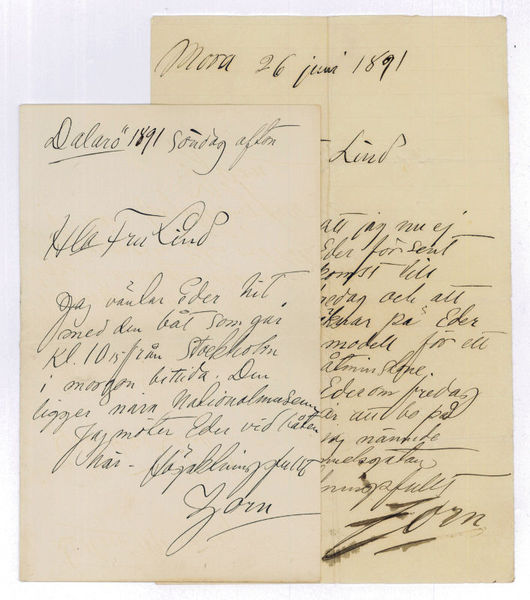 Mora 26 juni 1891
Lind
att jag nu ej
Eder för sent
komst till
fredag och att
räknar på Eder
modell för ett
Eder om fredag
är att bo på
jag nämnde
Zorn
Dalarö 1891 Söndag afton
Fru Lind
Jag väntar Eder hit
med den båt som går
kl. 10 15 från Stockholm
i morgon bittida. Den
ligger nära Nationalmuseum
Jag möter Eder vid båten
här. Högaktningsfullt
Zorn